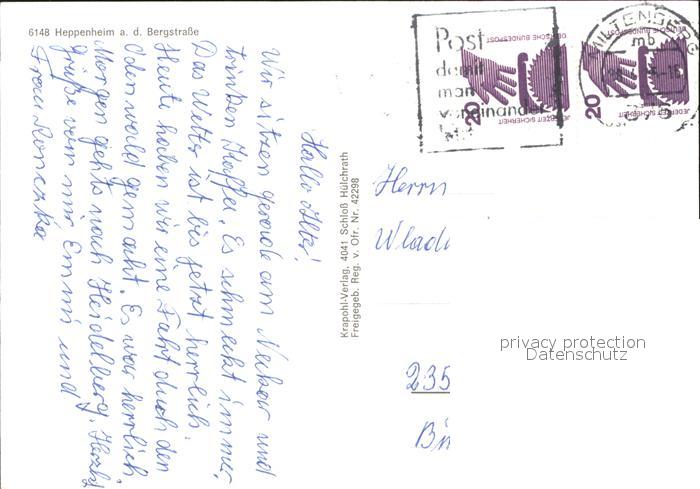 6148 Heppenheim a. d. Bergstraße
Hallo Alter!
Wir sitzen gerade am Neckar und
trinken Kaffee. Es schmeckt immer.
Das Wetter ist bis jetzt herrlich.
Heute haben wir eine Fahrt durch den
Odenwald gemacht. Es war herrlich.
Morgen gehts nach Heidelberg. Herzl.
Grüße von mir, Emmi und
Frau
Krapohl-Verlag, 4041 Schloß Hülchrath
Freigegeb. Reg. v. Ofr. Nr. 42298
Post
damit
man
voneinander
hört
DEUTSCHE BUNDESPOST
20
JEDERZEIT SICHERHEIT
DEUTSCHE BUNDESPOST
20
JEDERZEIT SICHERHEIT
MILTENBERG
mb
Herrn
Wladi
235
privacy protection
Datenschutz